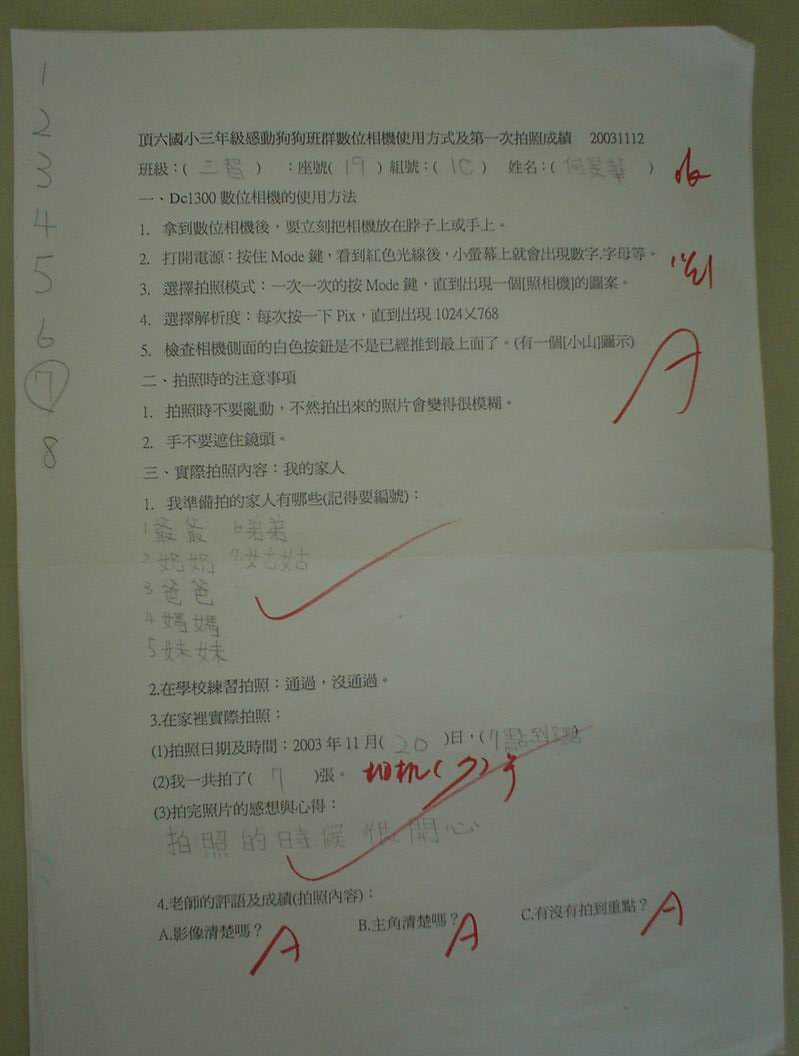 1
2
3
4
5
6
7
8
頂六國小三年級感動狗狗班群數位相機使用方式及第一次拍照成績 20031112
班級：( 三智 ) ：座號( 19 ) 組號：( 1C ) 姓名：( 何旻華 )
一、Dc1300 數位相機的使用方法
1. 拿到數位相機後，要立刻把相機放在脖子上或手上。
2. 打開電源：按住 Mode 鍵，看到紅色光線後，小螢幕上就會出現數字.字母等。
3. 選擇拍照模式：一次一次的按 Mode 鍵，直到出現一個[照相機]的圖案。
4. 選擇解析度：每次按一下 Pix，直到出現 1024╳768
5. 檢查相機側面的白色按鈕是不是已經推到最上面了。(有一個[小山]圖示)
A
二、拍照時的注意事項
1. 拍照時不要亂動，不然拍出來的照片會變得很模糊。
2. 手不要遮住鏡頭。
三、實際拍照內容：我的家人
1. 我準備拍的家人有哪些(記得要編號)：
1爺爺 6弟弟
2奶奶 7姑姑
3爸爸
4媽媽
5妹妹
2.在學校練習拍照：通過，沒通過。
3.在家裡實際拍照：
(1)拍照日期及時間：2003 年 11 月( 20 )日，(7點到8點)
(2)我一共拍了( 7 )張。 相机( 7 )号
(3)拍完照片的感想與心得：
拍照的時候很開心
4.老師的評語及成績(拍照內容)：
A.影像清楚嗎？ A B.主角清楚嗎？ A C.有沒有拍到重點？ A